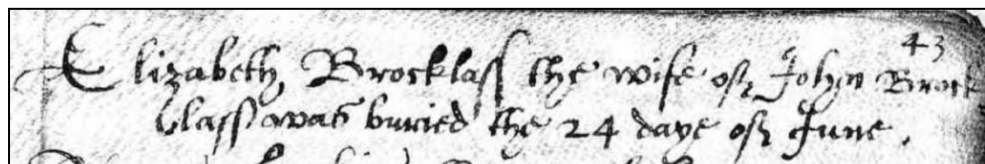 43
Elizabeth Brocklass the wife of John Brock
lass was buried the 24 daye of June.